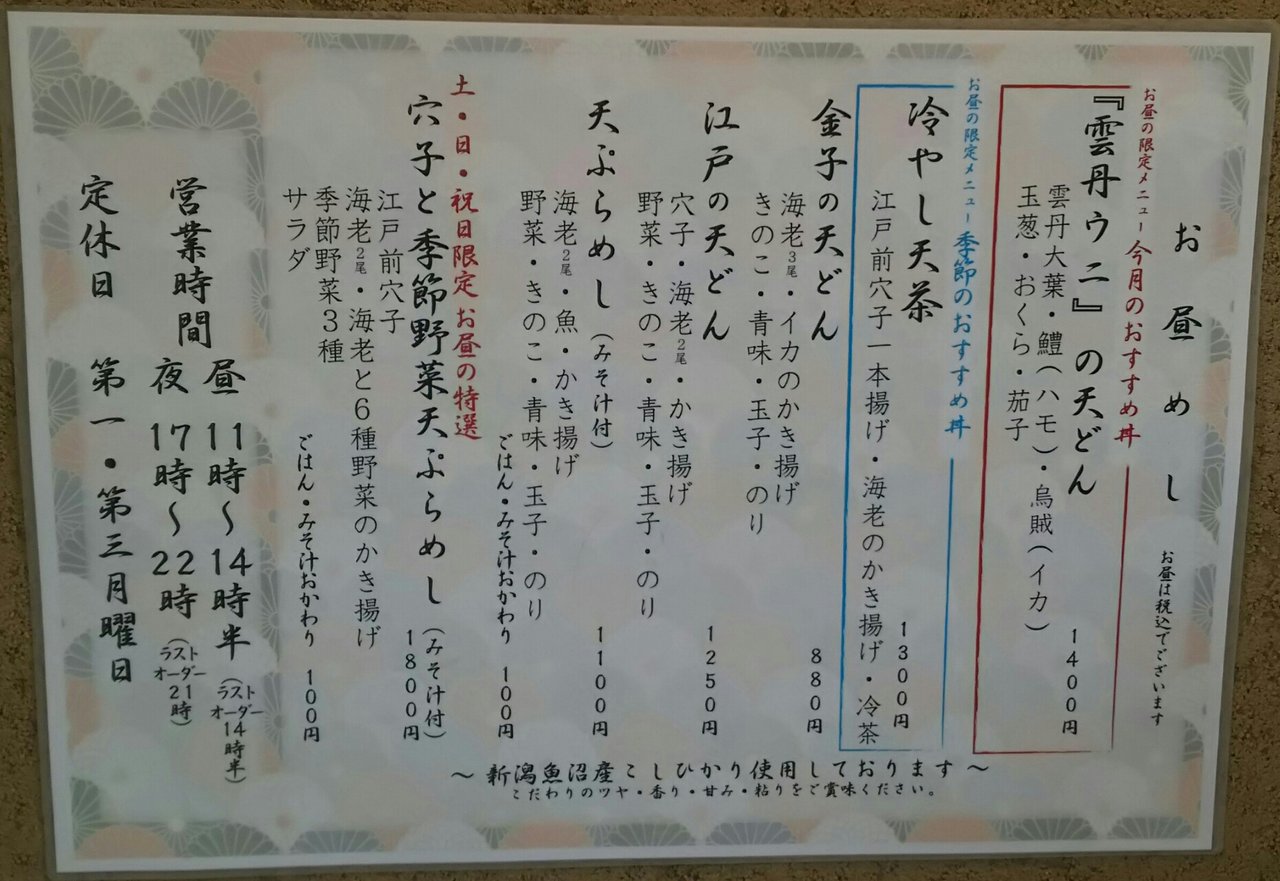 お昼めし
お昼は税込でございます
お昼の限定メニュー 今月のおすすめ丼
『雲丹ウニ』の天どん
雲丹大葉・鱧(ハモ)・烏賊(イカ)
玉葱・おくら・茄子
1400円
お昼の限定メニュー 季節のおすすめ丼
冷やし天茶
江戸前穴子一本揚げ・海老のかき揚げ・冷茶
1300円
金子の天どん
海老3尾・イカのかき揚げ
きのこ・青味・玉子・のり
880円
江戸の天どん
穴子・海老2尾・かき揚げ
野菜・きのこ・青味・玉子・のり
1250円
天ぷらめし(みそ汁付)
海老2尾・魚・かき揚げ
野菜・きのこ・青味・玉子・のり
1100円
ごはん・みそ汁おかわり 100円
土・日・祝日限定 お昼の特選
穴子と季節野菜天ぷらめし(みそ汁付)
江戸前穴子
海老2尾・海老と6種野菜のかき揚げ
季節野菜3種
サラダ
1800円
ごはん・みそ汁おかわり 100円
営業時間
昼 11時〜14時半(ラストオーダー14時半)
夜 17時〜22時(ラストオーダー21時)
定休日 第一・第三月曜日
〜新潟魚沼産こしひかり使用しております〜
こだわりのツヤ・香り・甘み・粘りをご賞味ください。